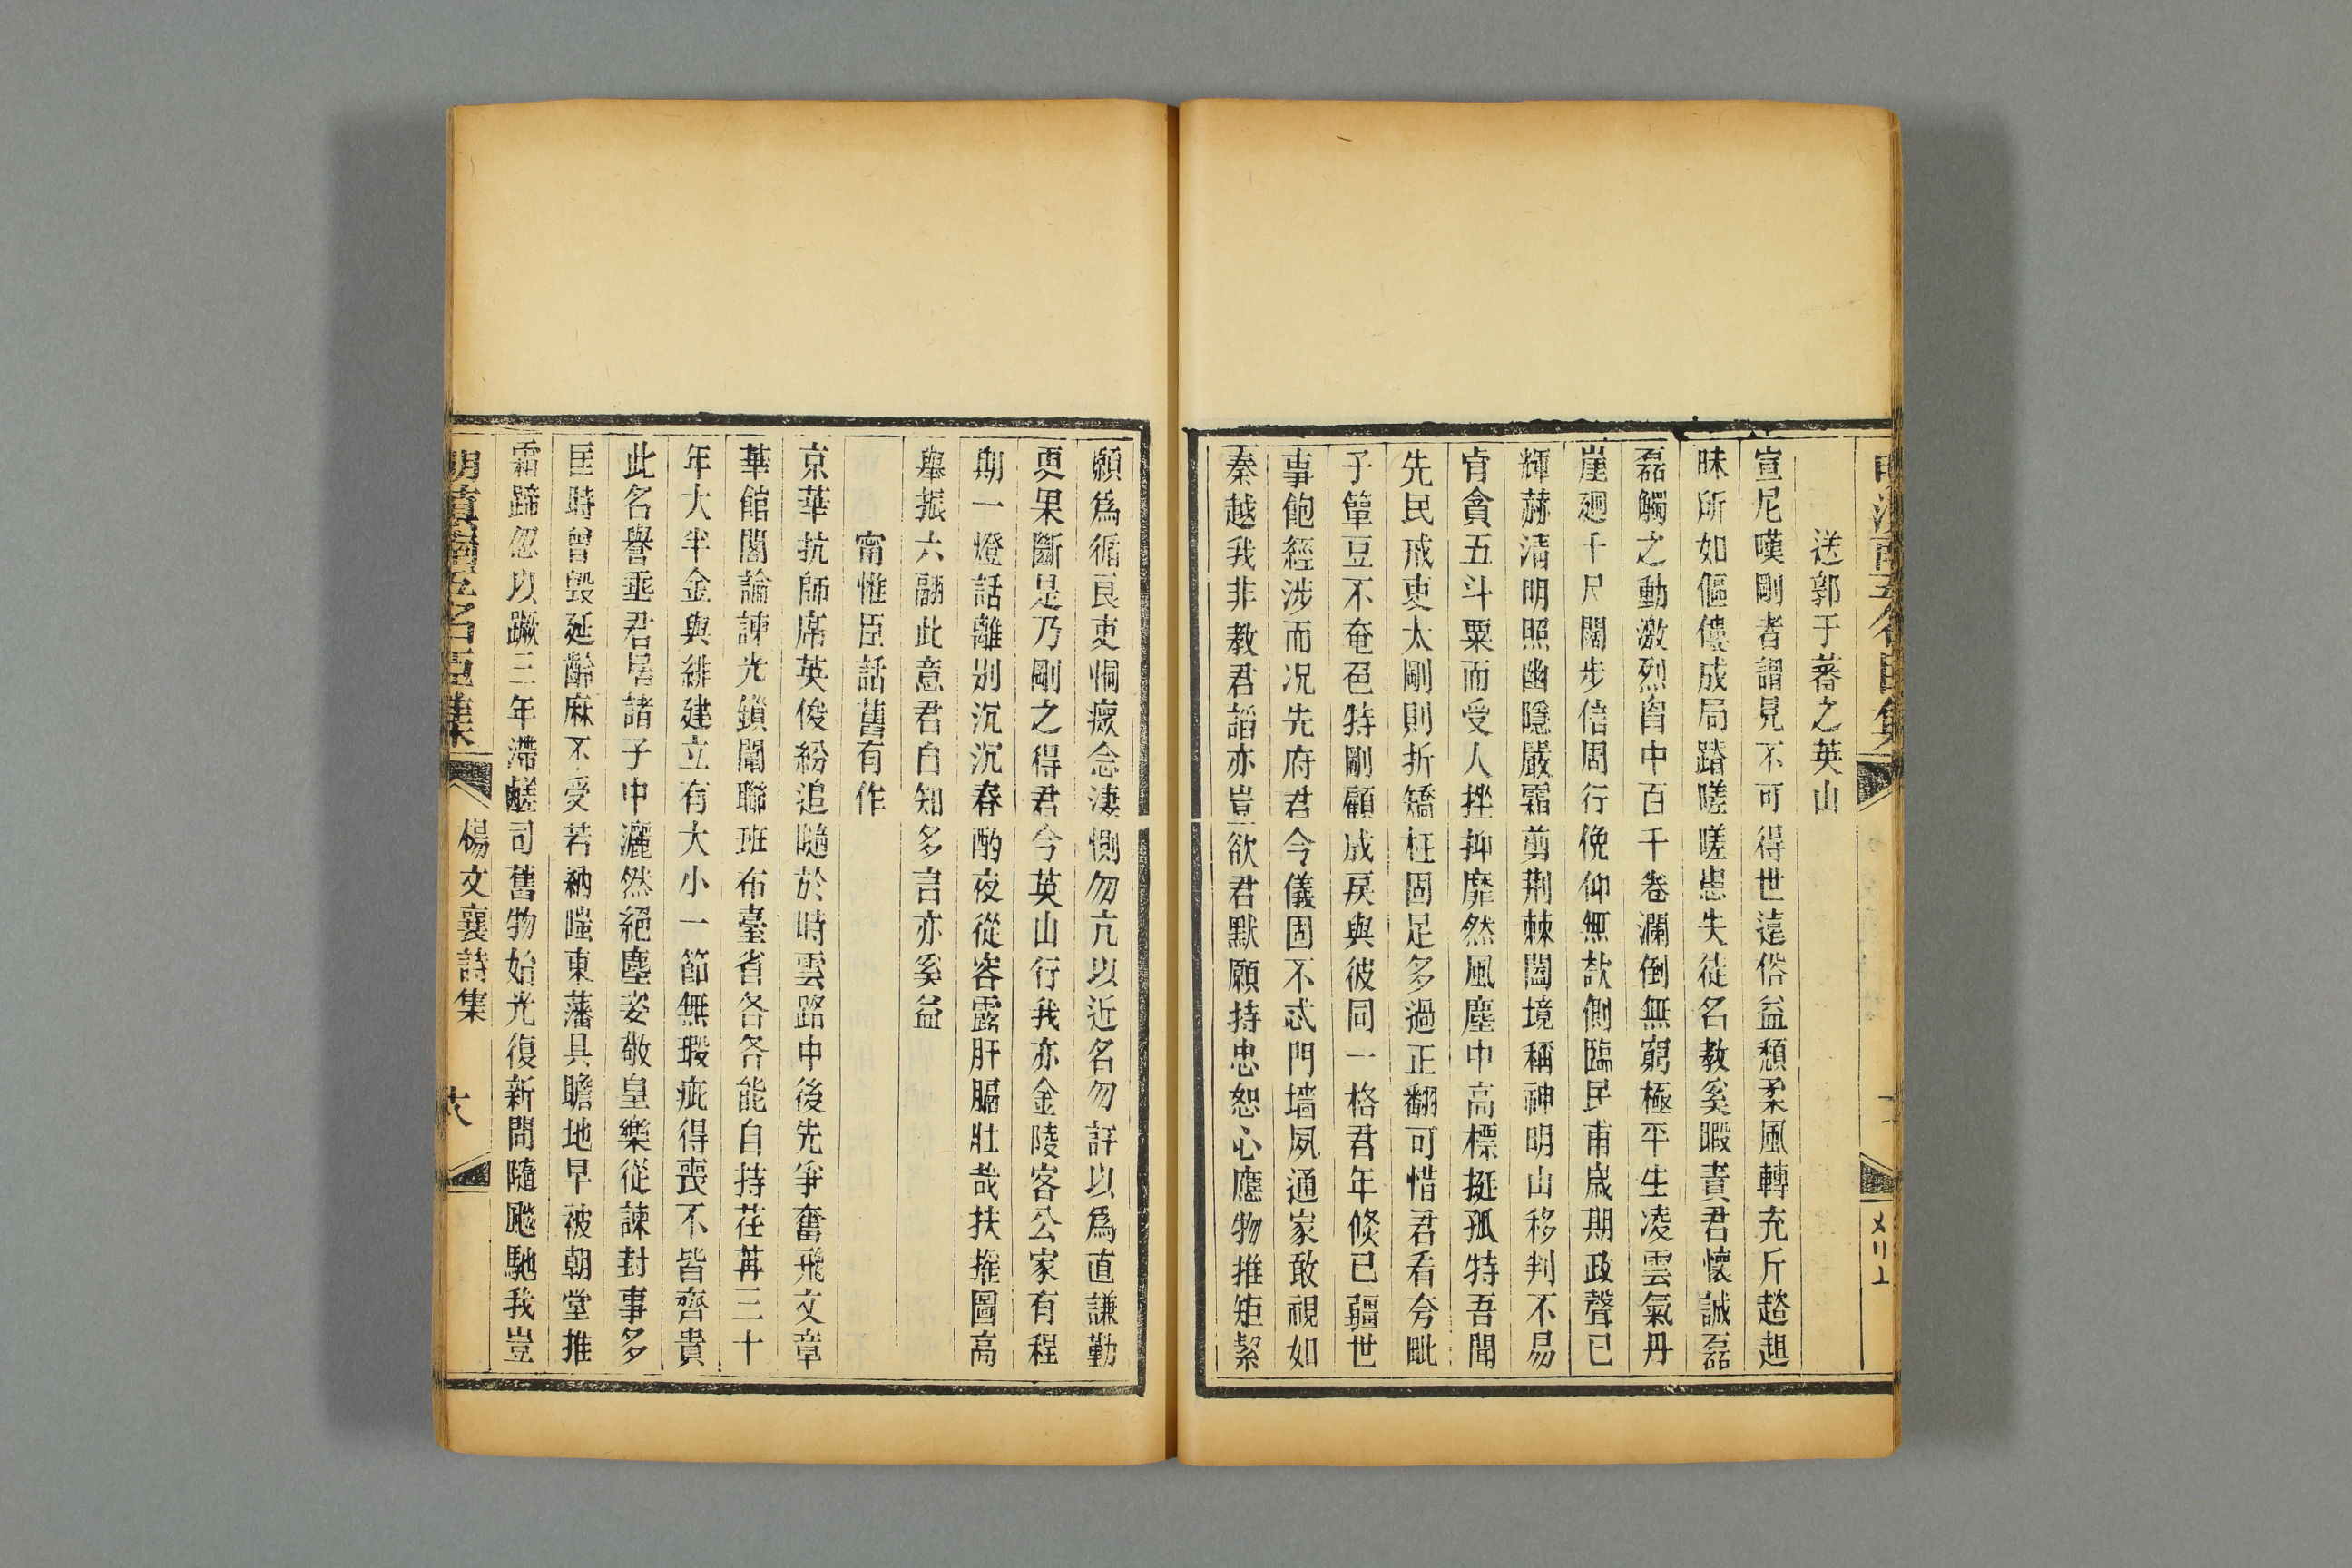 送郭于蕃之英山
宣尼嘆剛者謂見不可得世遠俗益頹柔風轉充斥趑趄
昧所如傴僂成局蹐嗟嗟患失徒名教奚暇責君懷誠磊
磊觸之動激烈胷中百千卷瀾倒無窮極平生凌雲氣丹
崖廻千尺闊步信周行俛仰無欹側臨民甫歲期政聲已
輝赫清明照幽隱嚴霜剪荆棘闔境稱神明山移判不易
肯貪五斗粟而受人挫抑靡然風塵中高標挺孤特吾聞
先民戒吏太剛則折矯枉固足多過正翻可惜君看夸毗
子簞豆不奄邑特剛顧成戾與彼同一格君年倐已疆世
事飽經涉而况先府君今儀固不忒門墻夙通家敢視如
秦越我非教君謟亦豈欲君默願持忠恕心應物推矩絜
願爲循良吏恫瘝念淒惻勿亢以近名勿訐以爲直謙勤
更果斷是乃剛之得君今英山行我亦金陵客公家有程
期一燈話離别沉沉春酌夜從容露肝膈壯哉扶摧圖高
舉振六翮此意君自知多言亦奚益
甯惟臣話舊有作
京華抗師席英俊紛追隨於時雲路中後先爭奮飛文章
華館閣論諫光鎖闈聯班布臺省各各能自持荏苒三十
年大半金與緋建立有大小一節無瑕疵得喪不皆齊貴
此名譽垂君居諸子中灑然絕塵姿敬皇樂從諫封事多
匡時曾毀延齡麻不受若納嗤東藩具瞻地早被朝堂推
霜蹄忽以蹶三年滯鹺司舊物始光復新問隨飈馳我豈
明滇南五名臣集
楊文襄詩集
六